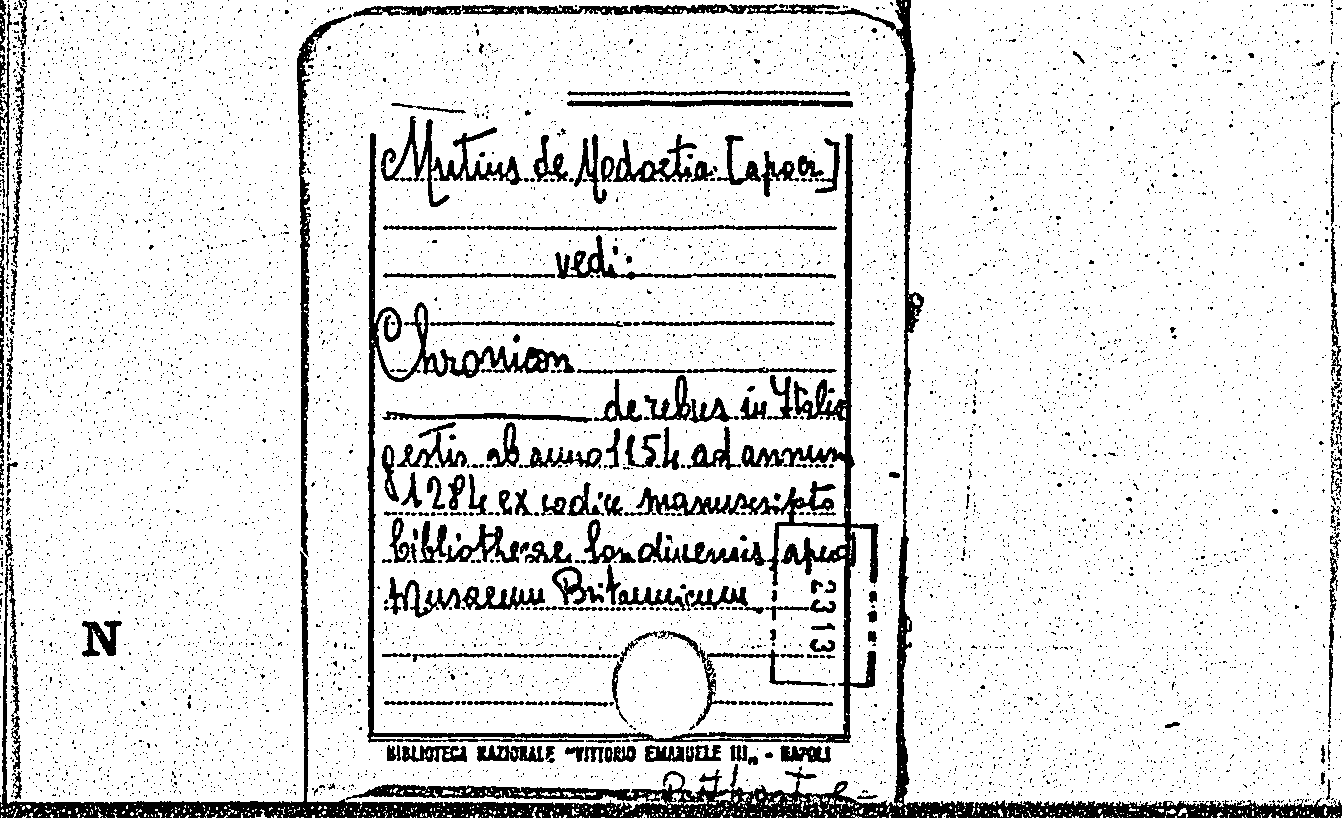 Mutius de Modoetia [apocr]
vedi:
Chronicon
de rebus in Italia
gestis ab anno 1154 ad annum
1284 ex codice manuscripto
bibliothecae londinensis apud
Musaeum Britannicum
2313
N
BIBLIOTECA NAZIONALE "VITTORIO EMANUELE III„ - NAPOLI